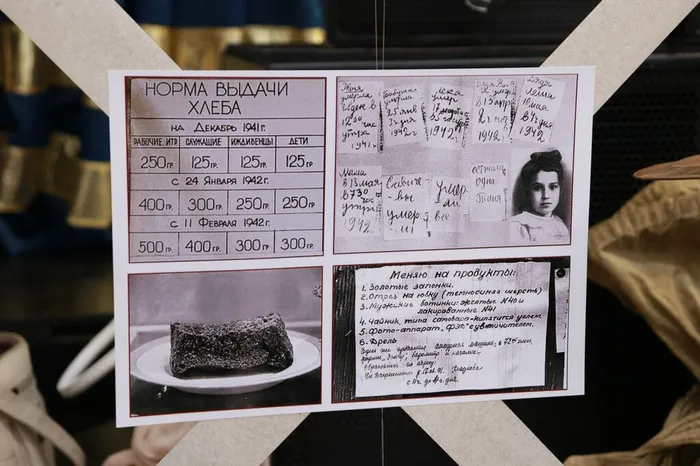 НОРМА ВЫДАЧИ
ХЛЕБА
НА ДЕКАБРЬ 1941 г.
РАБОЧИЕ, ИТР СЛУЖАЩИЕ ИЖДИВЕНЦЫ ДЕТИ
250 ГР. 125 ГР. 125 ГР. 125 ГР.
С 24 ЯНВАРЯ 1942 г.
400 ГР. 300 ГР. 250 ГР. 250 ГР.
С 11 ФЕВРАЛЯ 1942 г.
500 ГР. 400 ГР. 300 ГР. 300 ГР.
Женя
умерла
в
12
час
утра
1941 г
Бабушка
умерла
25 янв
1942 г
Лека
умер
17 марта
1942 г
Дядя
умер
в 13 апр
2 ч ноч
1942 г
Дядя
Леша
10 мая
в 4 ч дня
1942
Мама
в 13 мая
в 7 30
час
утра
1942
Савиче
вы
умер
ли
умер
ли
все
осталась
одна
Таня
Меняю на продукты:
1. Золотые запонки.
2. Отрез на юбку (темносиняя шерсть)
3. Мужские ботинки: желтые №40 и
лакированные №41
4. Чайник типа самовара-кипятится углем.
5. Фото-аппарат „ФЭД" с увеличителем.
6. Дрель